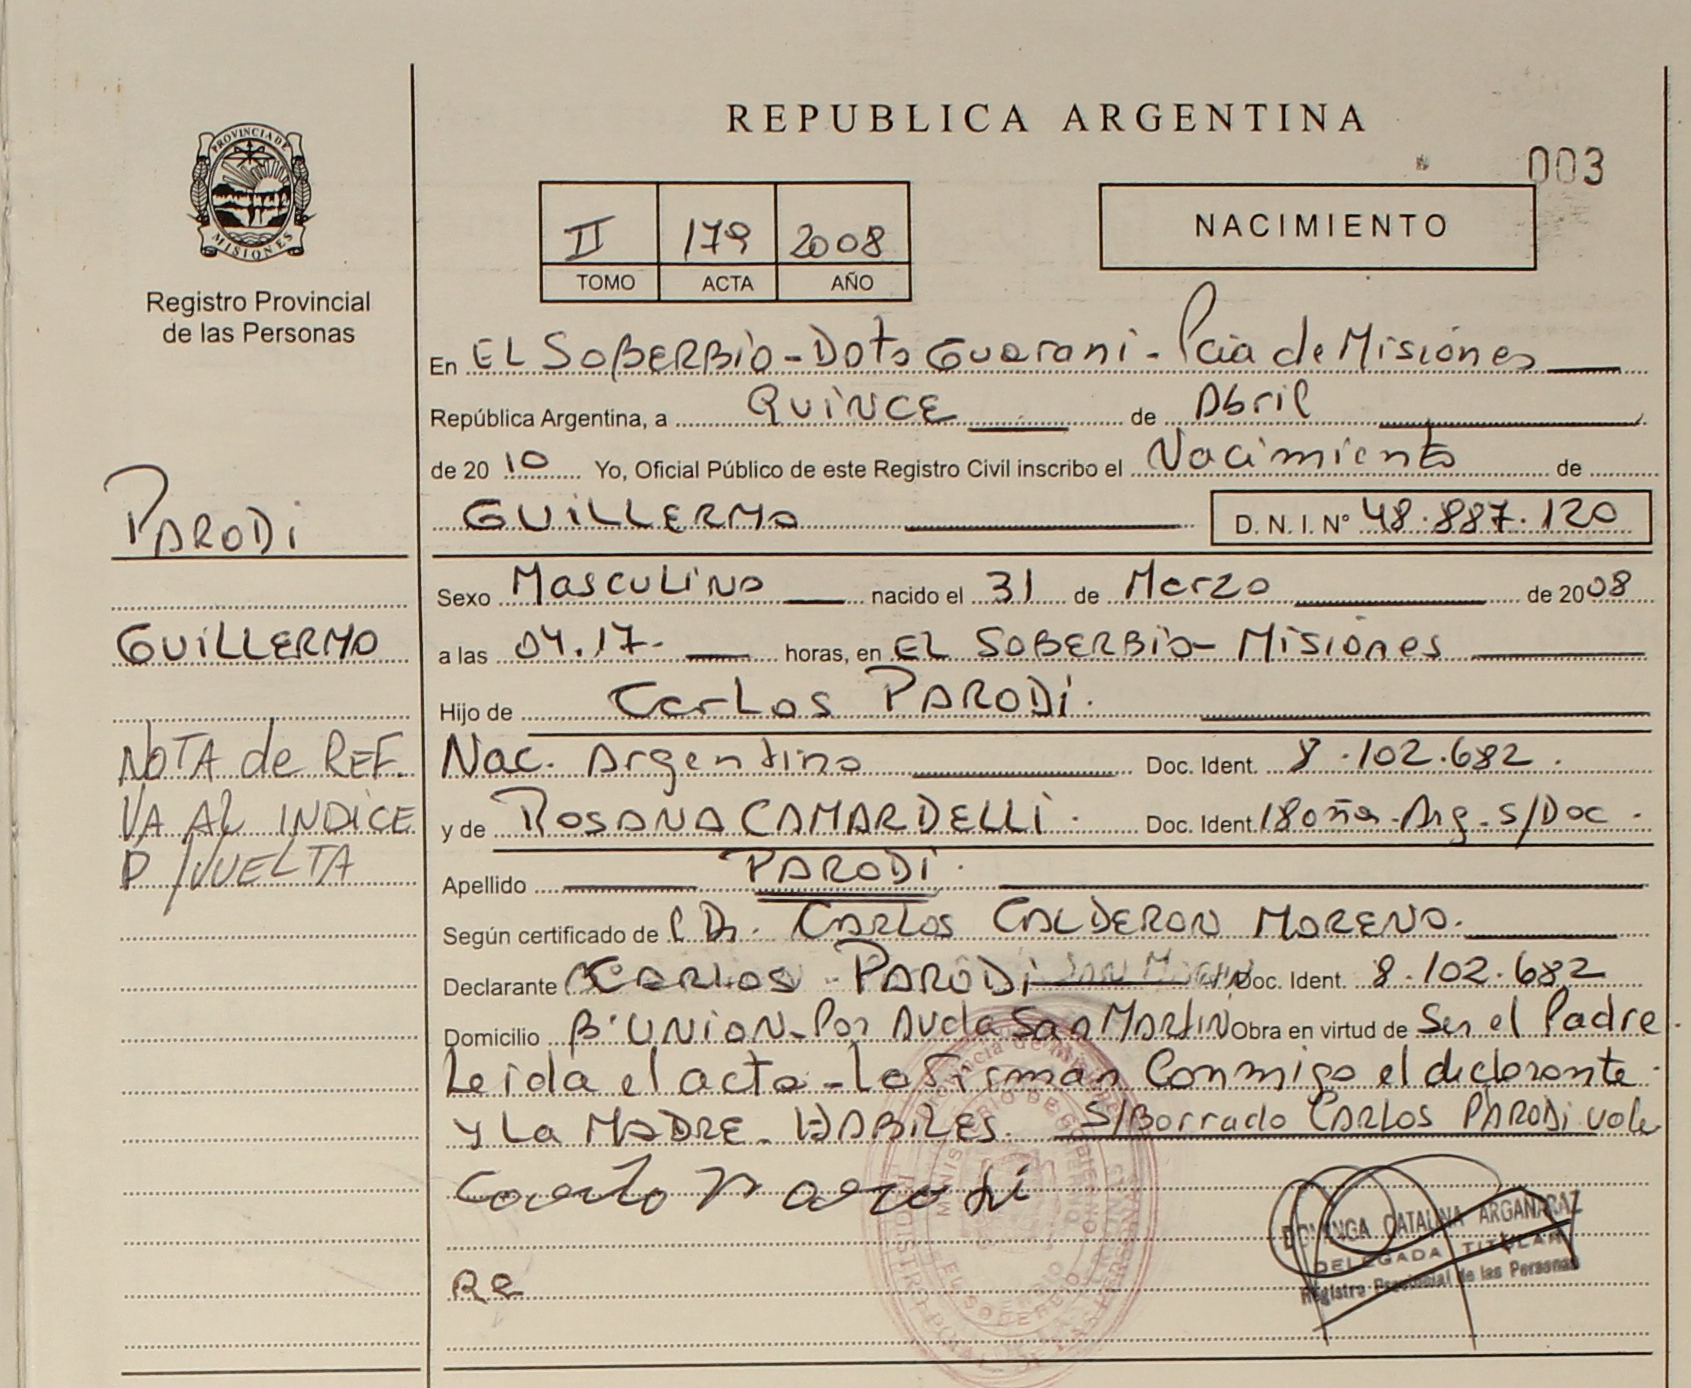 REPUBLICA ARGENTINA
003
PROVINCIA DE
MISIONES
Registro Provincial
de las Personas
II 179 2008
TOMO ACTA AÑO
NACIMIENTO
En EL SOBERBIO - Dpto Guarani - Pcia de Misiones
República Argentina, a QUINCE de Abril
de 2010 Yo, Oficial Público de este Registro Civil inscribo el Nacimiento de
GUILLERMO D. N. I. N° 48.887.120
PARODI
GUILLERMO
NOTA de REF.
VA AL INDICE
P/VUELTA
Sexo Masculino nacido el 31 de Marzo de 2008
a las 04.17- horas, en EL SOBERBIO - Misiones
Hijo de Carlos PARODI.
Nac. Argentino Doc. Ident. 8.102.682.
y de ROSANA CAMARDELLI. Doc. Ident. 18 años. Arg. S/Doc.
Apellido PARODI.
Según certificado de Dr. CARLOS CALDERON MORENO.
Declarante CARLOS PARODI Doc. Ident. 8.102.682
Domicilio B° UNION - Por Avda San Martin Obra en virtud de Ser el Padre.
Leida el acta - La firman Conmigo el declarante
y La MADRE - HABILES. S/Borrado CARLOS PARODI vale
DOMINGA CATALINA ARGAÑARAZ
DELEGADA TITULAR
Registro Provincial de las Personas